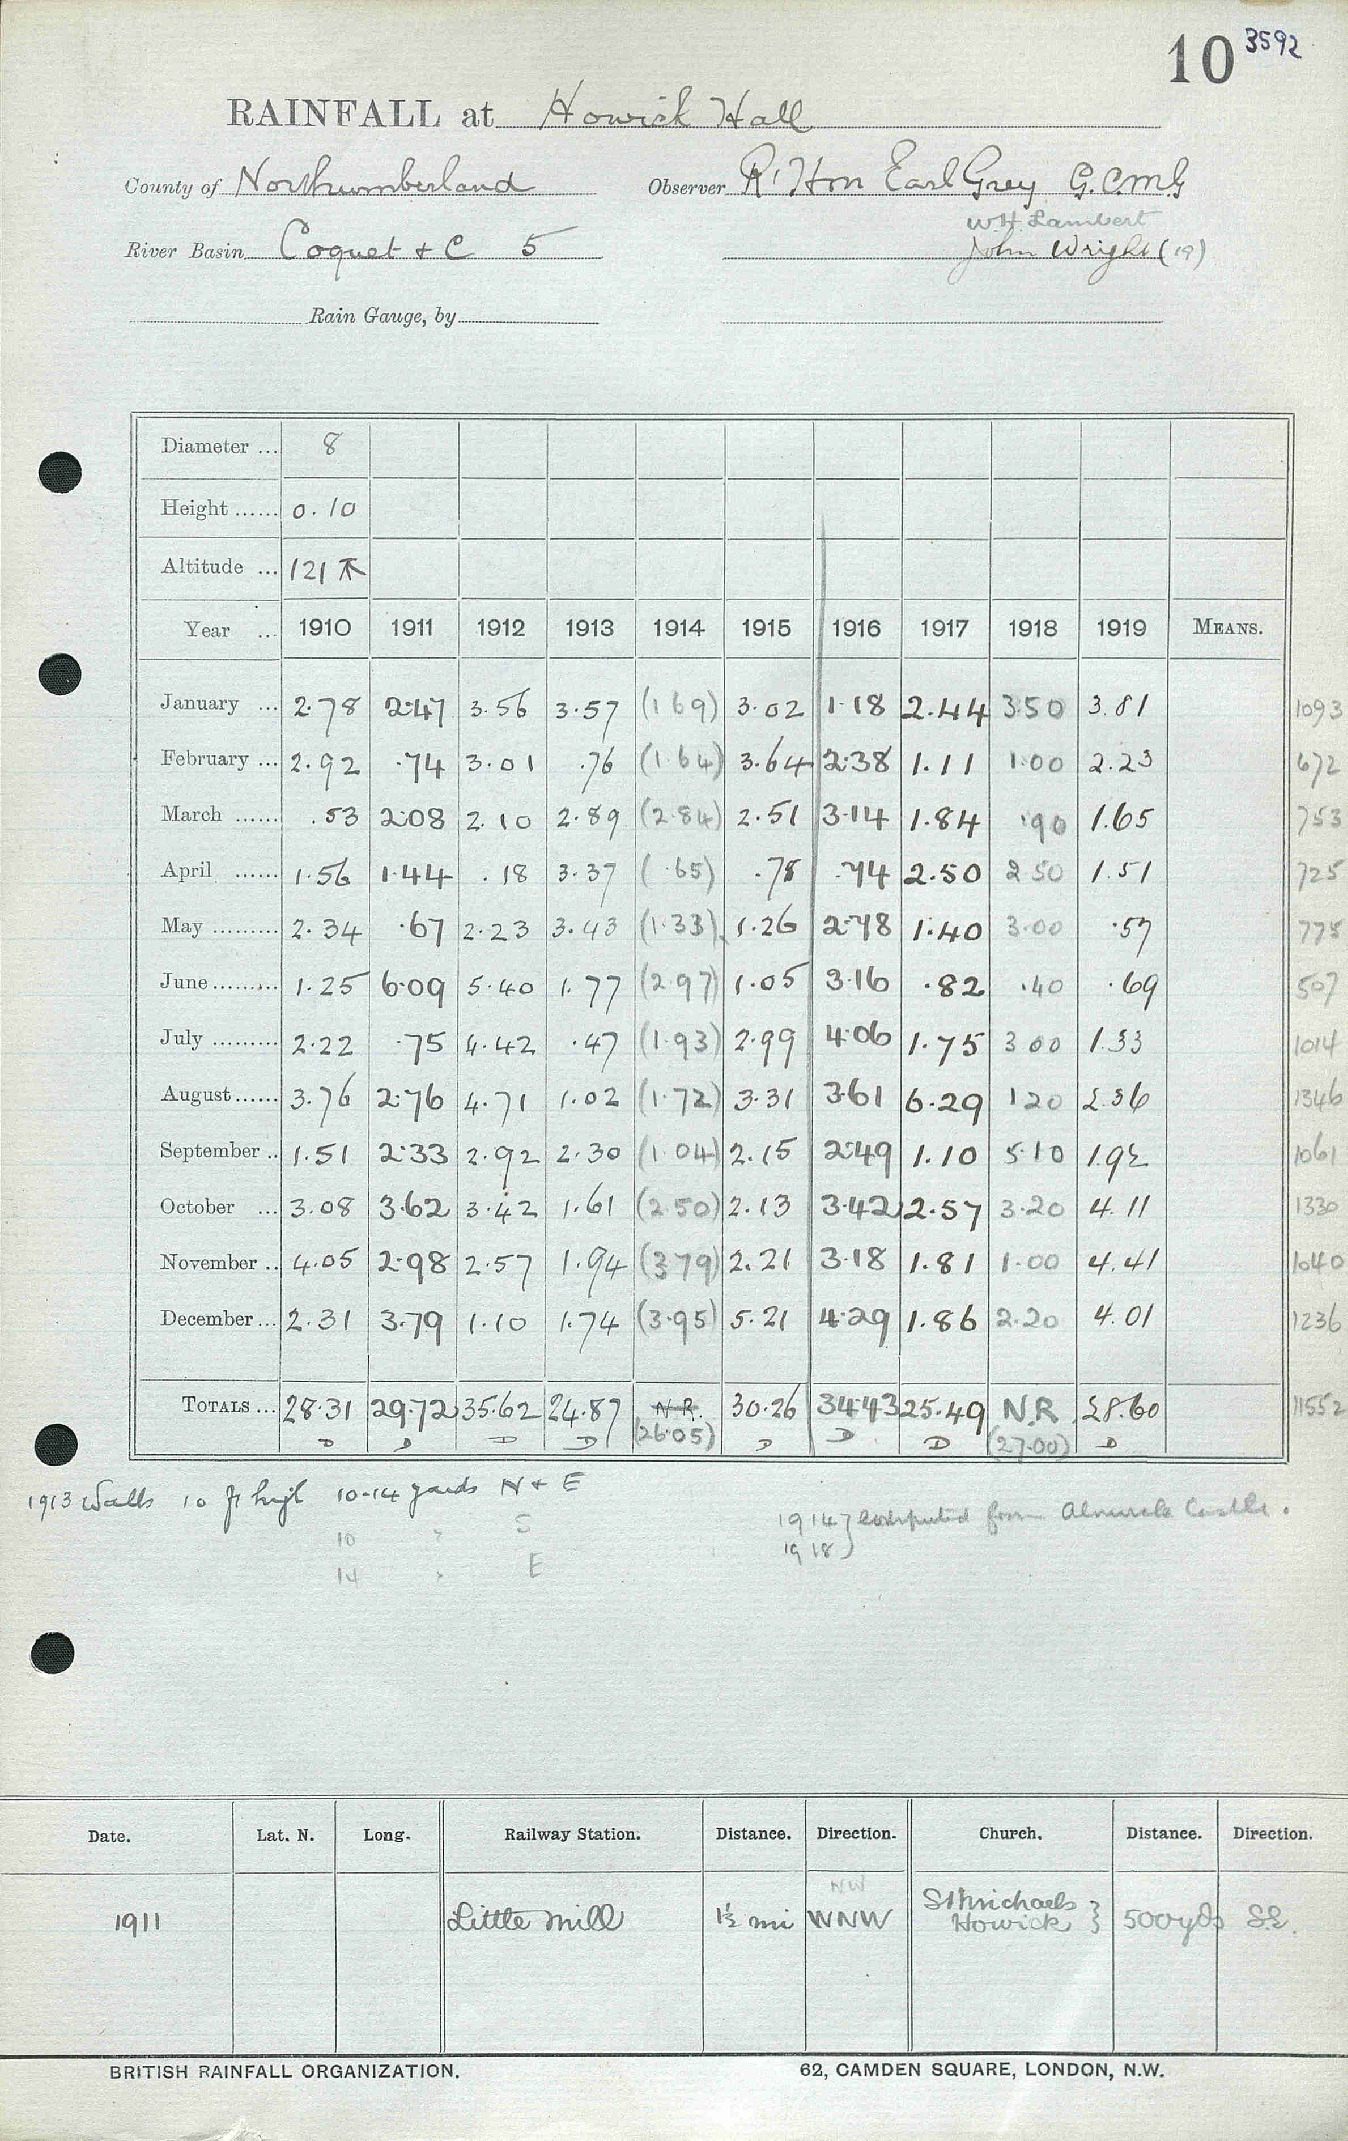 10 3592
RAINFALL at Howick Hall
County of Northumberland Observer Rt Hon Earl Grey G.C.M.G
W.H. Lambert
River Basin Coquet & C 5 John Wright (19)
Rain Gauge, by
Diameter ... 8
Height ...... 0.10
Altitude ... 121
Year ... 1910 1911 1912 1913 1914 1915 1916 1917 1918 1919 MEANS.
January ... 2.78 2.47 3.56 3.57 (1.69) 3.02 1.18 2.44 3.50 3.81 1093
February ... 2.92 .74 3.01 .76 (1.64) 3.64 2.38 1.11 1.00 2.23 672
March ...... .53 2.08 2.10 2.89 (2.84) 2.51 3.14 1.84 .90 1.65 753
April ...... 1.56 1.44 .18 3.37 (.65) .78 .74 2.50 2.50 1.51 725
May ......... 2.34 .67 2.23 3.43 (1.33) 1.26 2.78 1.40 3.00 .57 775
June ......... 1.25 6.09 5.40 1.77 (2.97) 1.05 3.16 .82 .40 .69 507
July ......... 2.22 .75 4.42 .47 (1.93) 2.99 4.06 1.75 3.00 1.33 1014
August ...... 3.76 2.76 4.71 1.02 (1.72) 3.31 3.61 6.29 1.20 2.36 1346
September .. 1.51 2.33 2.92 2.30 (1.04) 2.15 2.49 1.10 5.10 1.92 1061
October ... 3.08 3.62 3.42 1.61 (2.50) 2.13 3.42 2.57 3.20 4.11 1330
November .. 4.05 2.98 2.57 1.94 (3.79) 2.21 3.18 1.81 1.00 4.41 1040
December ... 2.31 3.79 1.10 1.74 (3.95) 5.21 4.29 1.86 2.20 4.01 1236
TOTALS ... 28.31 29.72 35.62 24.87 N.R. 30.26 34.43 25.49 N.R 28.60 11552
D D D D (26.05) D D D (27.00) D
1913 Walls 10 ft high 10-14 yards N & E
10 " S
14 " E
1914 } computed from Alnwick Castle.
1918
Date. Lat. N. Long. Railway Station. Distance. Direction. Church. Distance. Direction.
NW
1911 Little Mill 1½ mi WNW St Michaels Howick } 500 yds S.E.
BRITISH RAINFALL ORGANIZATION. 62, CAMDEN SQUARE, LONDON, N.W.